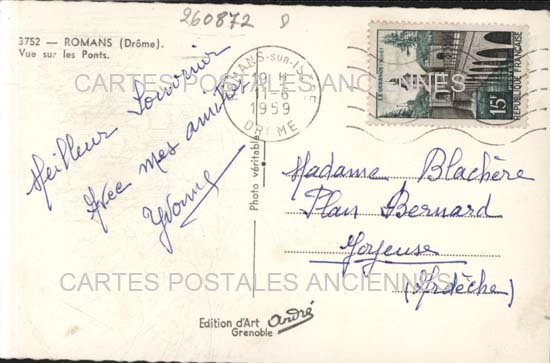 260872 D
3752 — ROMANS (Drôme).
Vue sur les Ponts.
Meilleur Souvenir
Avec mes amitiés
Yvonne
ROMANS-SUR-ISERE
11-6
1959
DROME
15F
REPUBLIQUE FRANÇAISE
Photo véritable
Madame Blachère
Plan Bernard
Joyeuse
(Ardèche)
CARTES POSTALES ANCIENNES
CARTES POSTALES ANCIENNES
Edition d'Art André
Grenoble